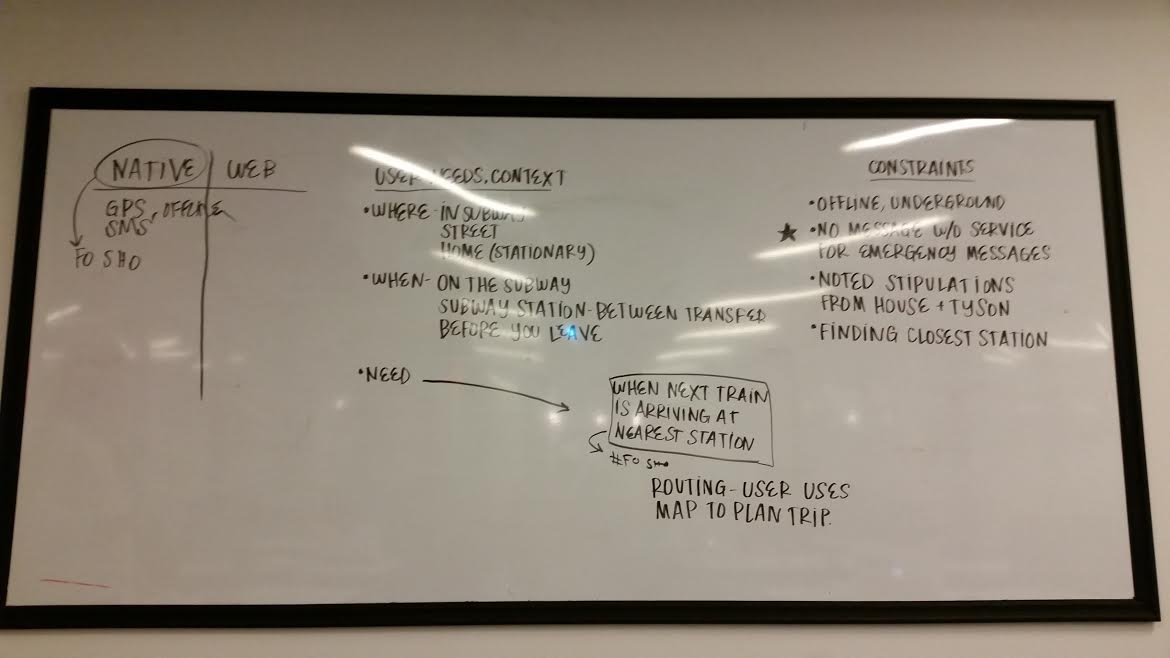 NATIVE | WEB
GPS, OFFLINE
SMS
FO SHO
USER NEEDS, CONTEXT
•WHERE - IN SUBWAY
STREET
HOME (STATIONARY)
•WHEN - ON THE SUBWAY
SUBWAY STATION - BETWEEN TRANSFER
BEFORE YOU LEAVE
•NEED
WHEN NEXT TRAIN
IS ARRIVING AT
NEAREST STATION
#FO SHO
ROUTING - USER USES
MAP TO PLAN TRIP.
CONSTRAINTS
•OFFLINE, UNDERGROUND
★ •NO MESSAGE W/O SERVICE
FOR EMERGENCY MESSAGES
•NOTED STIPULATIONS
FROM HOUSE + TYSON
•FINDING CLOSEST STATION